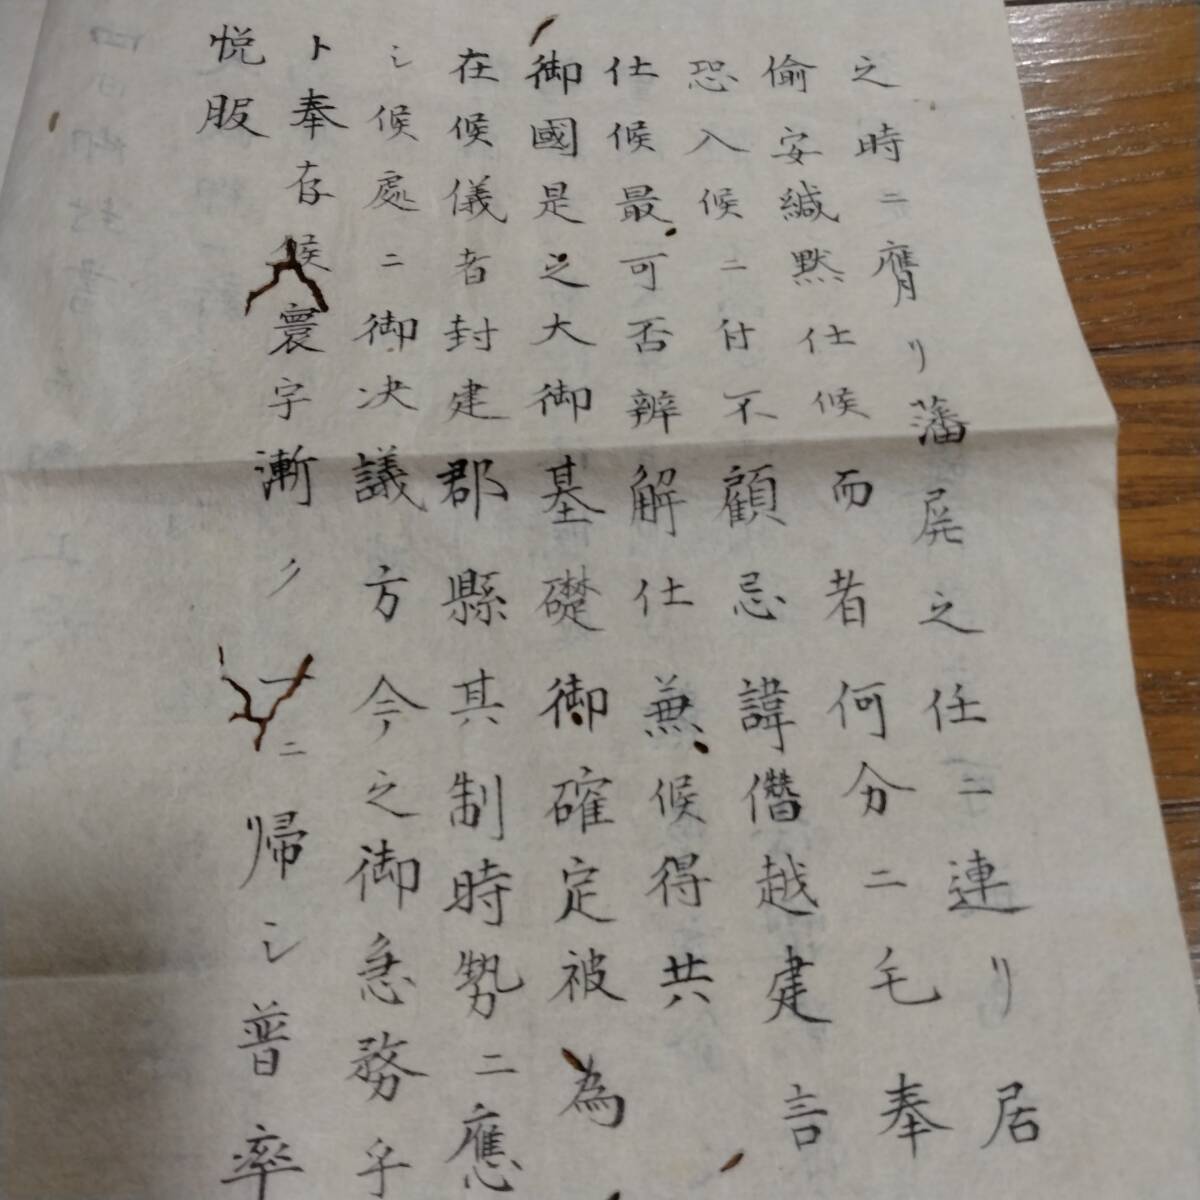 之時ニ膺リ藩屏之任ニ連リ居
偷安緘黙仕候而者何分ニモ奉
恐入候ニ付不顧忌諱僭越建言
仕候最可否辨解仕兼候得共
御國是之大御基礎御確定被為
在候儀者封建郡縣其制時勢ニ應
シ候處ニ御决議方今之御急務乎
ト奉存候寰宇漸ク一ニ帰シ普率
悦服